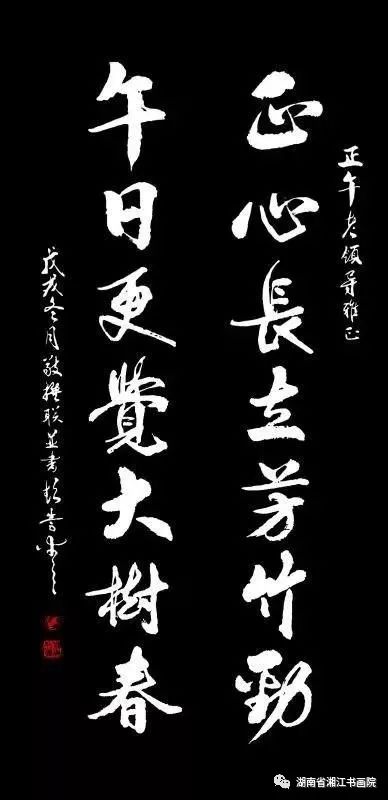 正午老领导雅正
正心長立芳竹勁
午日更覺大樹春
戊亥冬月敬撰联並书
湖南省湘江书画院